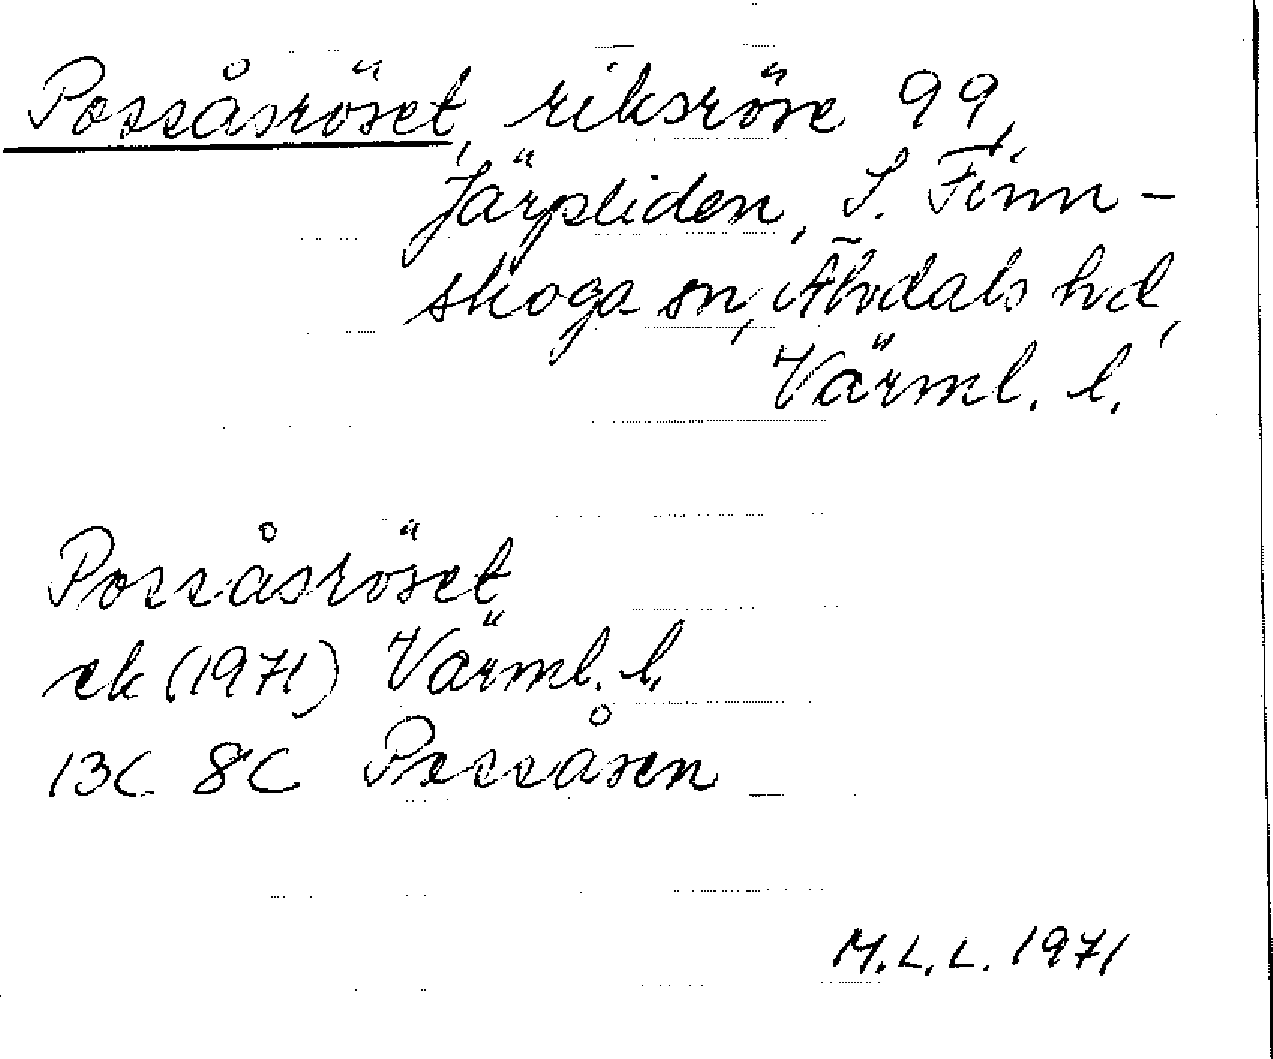 Possåsröset, riksröse 99,
Järpliden, S. Finn-
skoga sn, Älvdals hd,
Värml. l.
Possåsröset
ek (1971) Värml. l.
13C 8C Possåsen
M.L.L. 1971